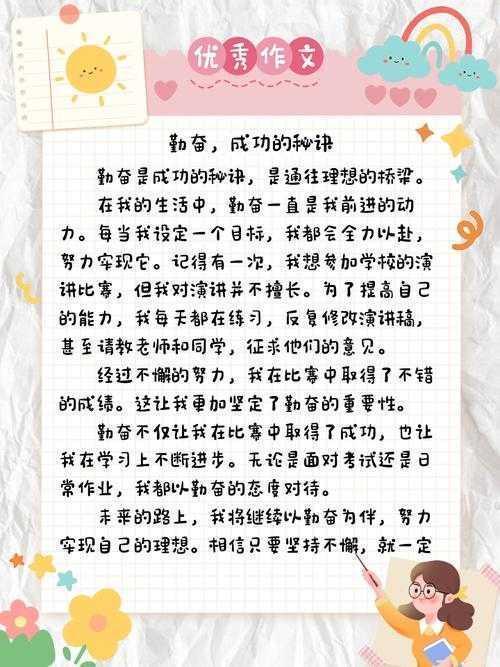 优秀作文
勤奋，成功的秘诀
勤奋是成功的秘诀，是通往理想的桥梁。
在我的生活中，勤奋一直是我前进的动
力。每当我设定一个目标，我都会全力以赴，
努力实现它。记得有一次，我想参加学校的演
讲比赛，但我对演讲并不擅长。为了提高自己
的能力，我每天都在练习，反复修改演讲稿，
甚至请教老师和同学，征求他们的意见。
经过不懈的努力，我在比赛中取得了不错
的成绩。这让我更加坚定了勤奋的重要性。
勤奋不仅让我在比赛中取得了成功，也让
我在学习上不断进步。无论是面对考试还是日
常作业，我都以勤奋的态度对待。
未来的路上，我将继续以勤奋为伴，努力
实现自己的理想。相信只要坚持不懈，就一定